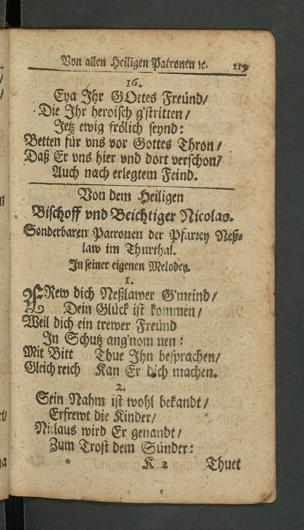 Von allen Heiligen Patronen ꝛc. 219
16.
Eya Ihr GOttes Freünd/
Die Ihr heroisch g'stritten/
Jetz ewig frölich seynd:
Betten für vns vor Gottes Thron/
Daß Er vns hier vnd dort verschon/
Auch nach erlegtem Feind.
Von dem Heiligen
Bischoff vnd Beichtiger Nicolao.
Sonderbaren Patronen der Pfarrey Neß-
law im Thurthal.
In seiner eigenen Melodey.
1.
FRew dich Neßlawer G'meind/
Dein Glück ist kommen/
Weil dich ein trewer Freünd
In Schutz ang'nommen:
Mit Bitt Thue Ihn besprachen/
Gleich reich Kan Er dich machen.
2.
Sein Nahm ist wohl bekandt/
Erfrewt die Kinder/
Niclaus wird Er genandt/
Zum Trost dem Sünder:
K 2 Thuet